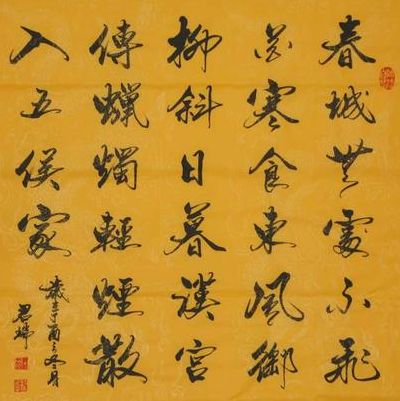 春城無處不飛
花寒食東風御
柳斜日暮漢宮
傳蠟燭輕煙散
入五侯家
歲在丁酉之冬月